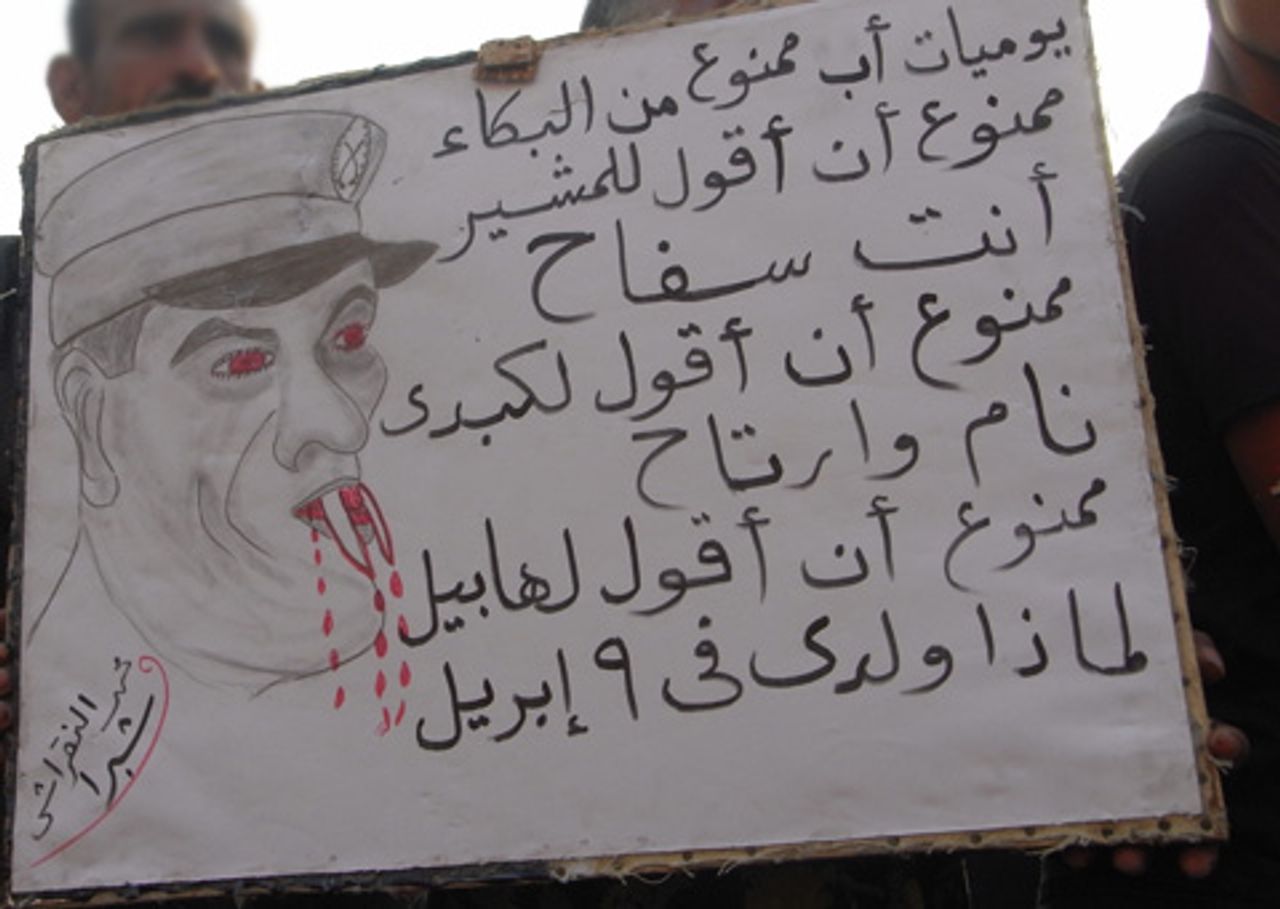 يوميات أب ممنوع من البكاء
ممنوع أن أقول للمشير
أنت سفاح
ممنوع أن أقول لكبدى
نام وارتاح
ممنوع أن أقول لهابيل
لماذا ولدى فى ٩ إبريل
محمد النقراشى
شبرا